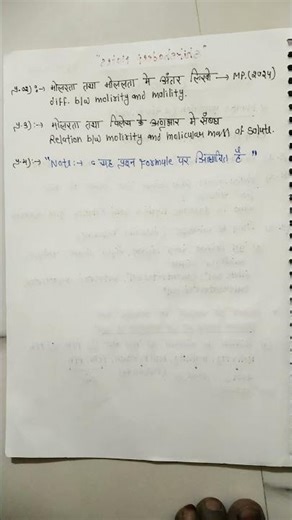 प्र-02) :→ मोलरता तथा मोललता मे अंतर लिखो → MP.(2024)
diff. b/w molirity and molility.
प्र-3) :→ मोलरता तथा विलेय के अणुभार मे संबंध
Relation b/w molirity and moliculer mass of solute.
प्र-4) :→ "Note :→ यह प्रश्न Formule पर आधारित है "